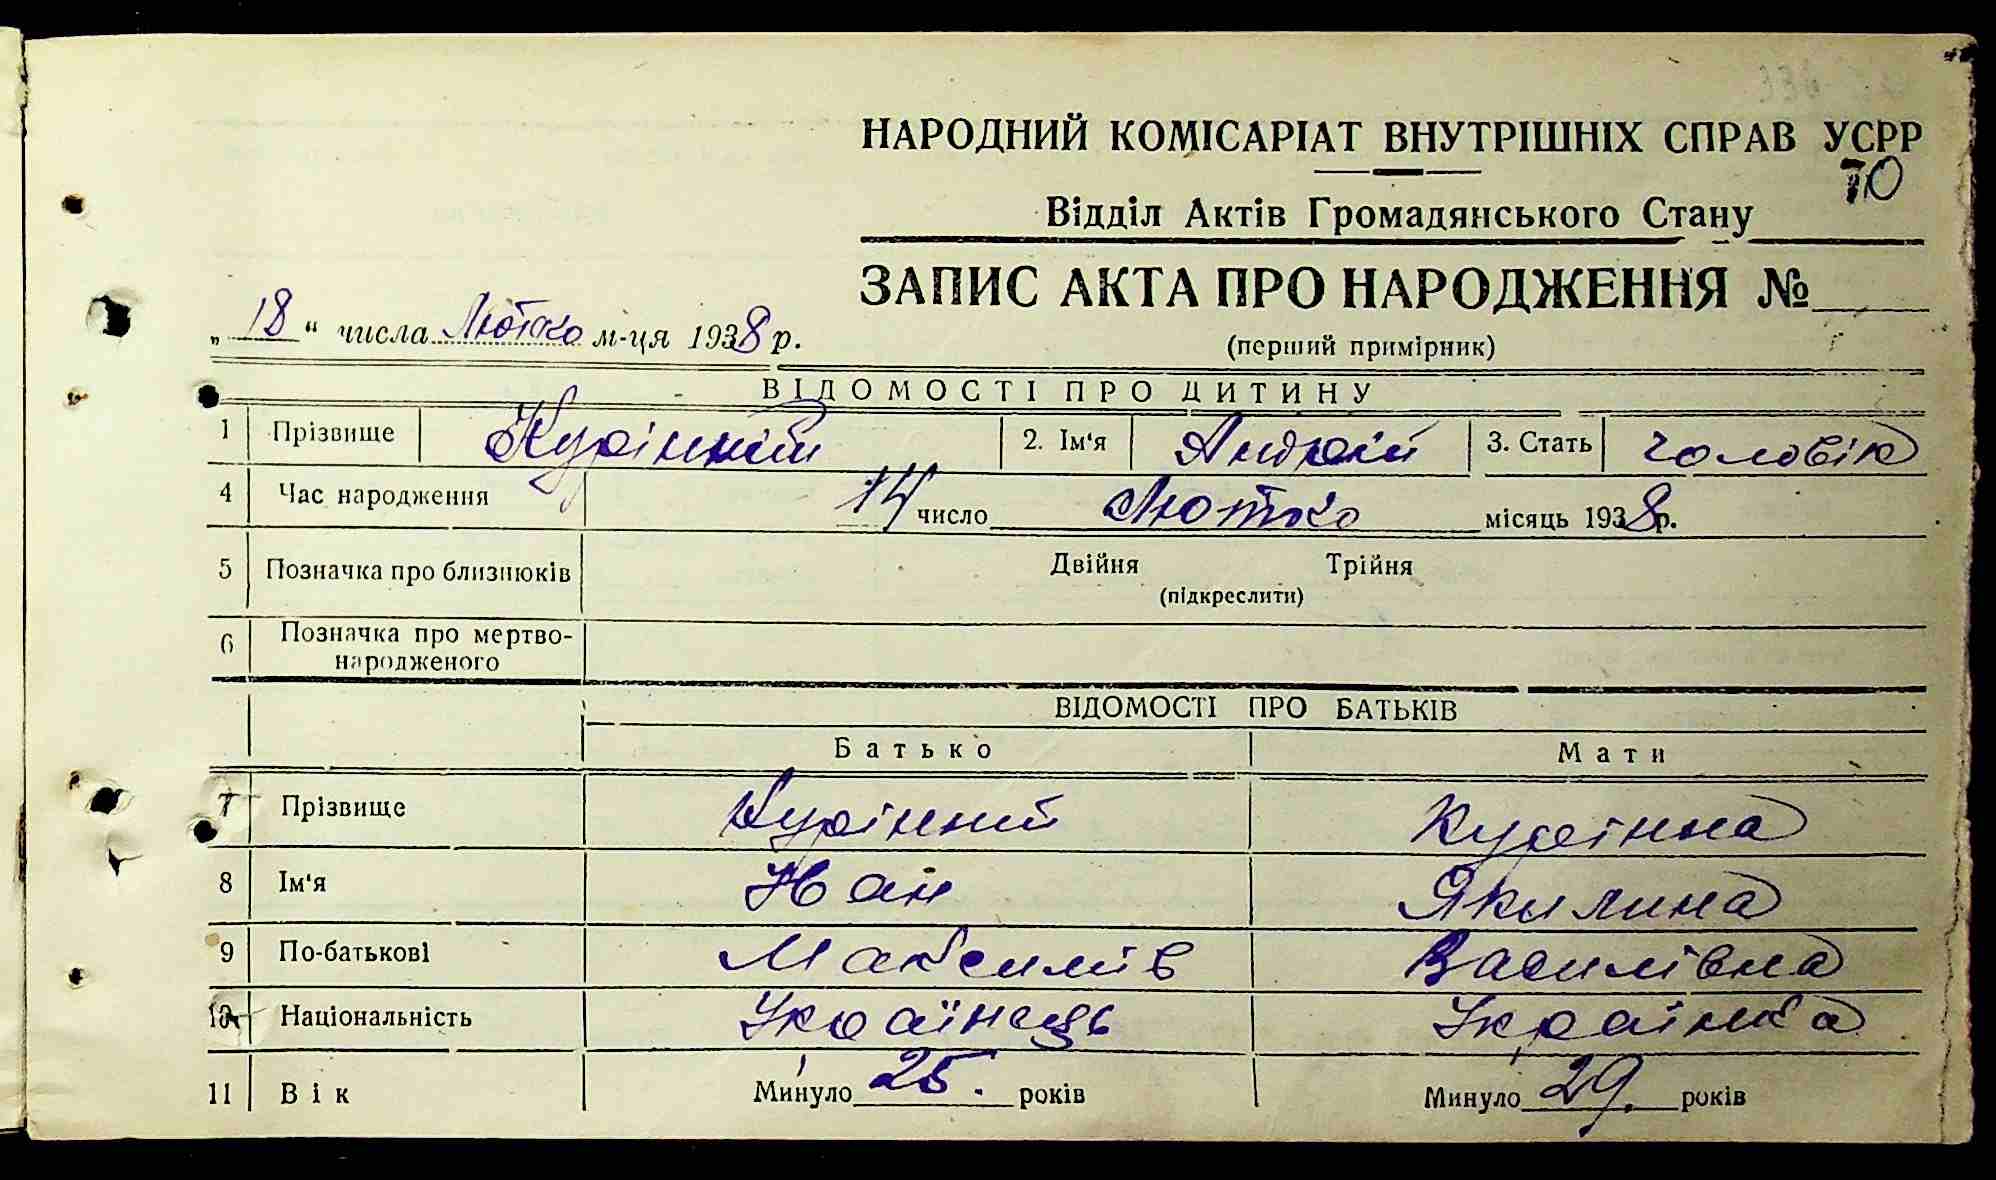 НАРОДНИЙ КОМІСАРІАТ ВНУТРІШНІХ СПРАВ УСРР
70
Відділ Актів Громадянського Стану
ЗАПИС АКТА ПРО НАРОДЖЕННЯ №
„18“ числа Лютого м-ця 1938 р.
(перший примірник)
ВІДОМОСТІ ПРО ДИТИНУ
1 Прізвище Курінний 2. Ім'я Андрій 3. Стать чоловік
4 Час народження 14 число Лютого місяць 1938 р.
5 Позначка про близнюків Двійня Трійня
(підкреслити)
6 Позначка про мертво-
народженого
ВІДОМОСТІ ПРО БАТЬКІВ
Батько Мати
7 Прізвище Курінний Курінна
8 Ім'я Іван Якилина
9 По-батькові Максимів Василівна
10 Національність Українець Українка
11 Вік Минуло 25. років Минуло 29. років